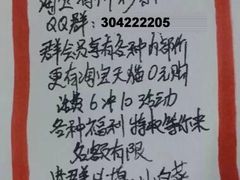 QQ群:304222205
群会员享有各种内部价
更有淘宝天猫0元购
话费6冲10活动
各种福利 特权等你来
名额有限